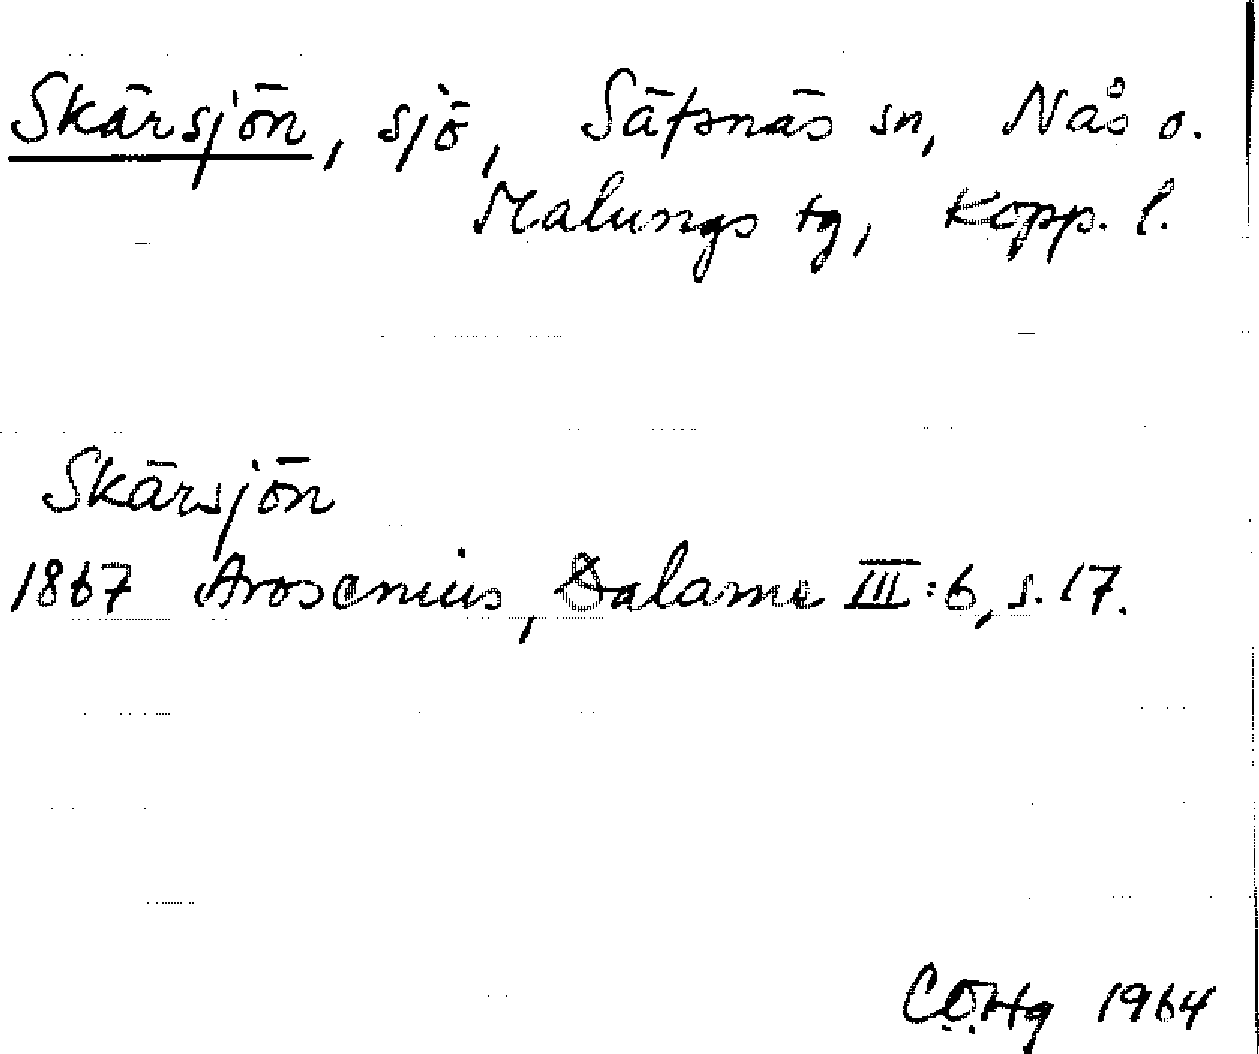 Skärsjön, sjö, Säfsnäs sn, Nås o.
Malungs tg, Kopp. l.
Skärsjön
1867 Arosenius, Dalarne III:6, s. 17.
CÖHg 1964